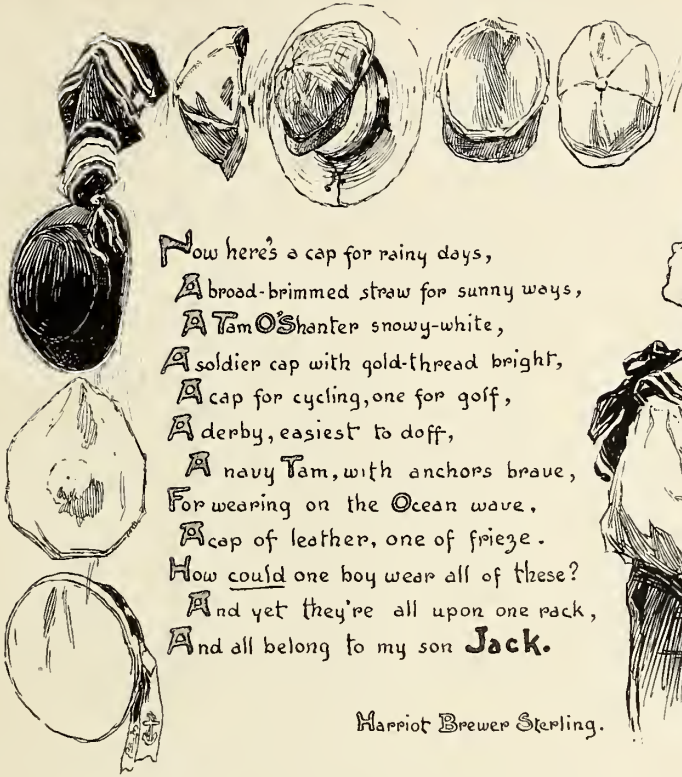 Now here's a cap for rainy days,
A broad-brimmed straw for sunny ways,
A Tam O'Shanter snowy-white,
A soldier cap with gold-thread bright,
A cap for cycling, one for golf,
A derby, easiest to doff,
A navy Tam, with anchors brave,
For wearing on the Ocean wave.
A cap of leather, one of frieze.
How could one boy wear all of these?
And yet they're all upon one rack,
And all belong to my son Jack.
Harriot Brewer Sterling.